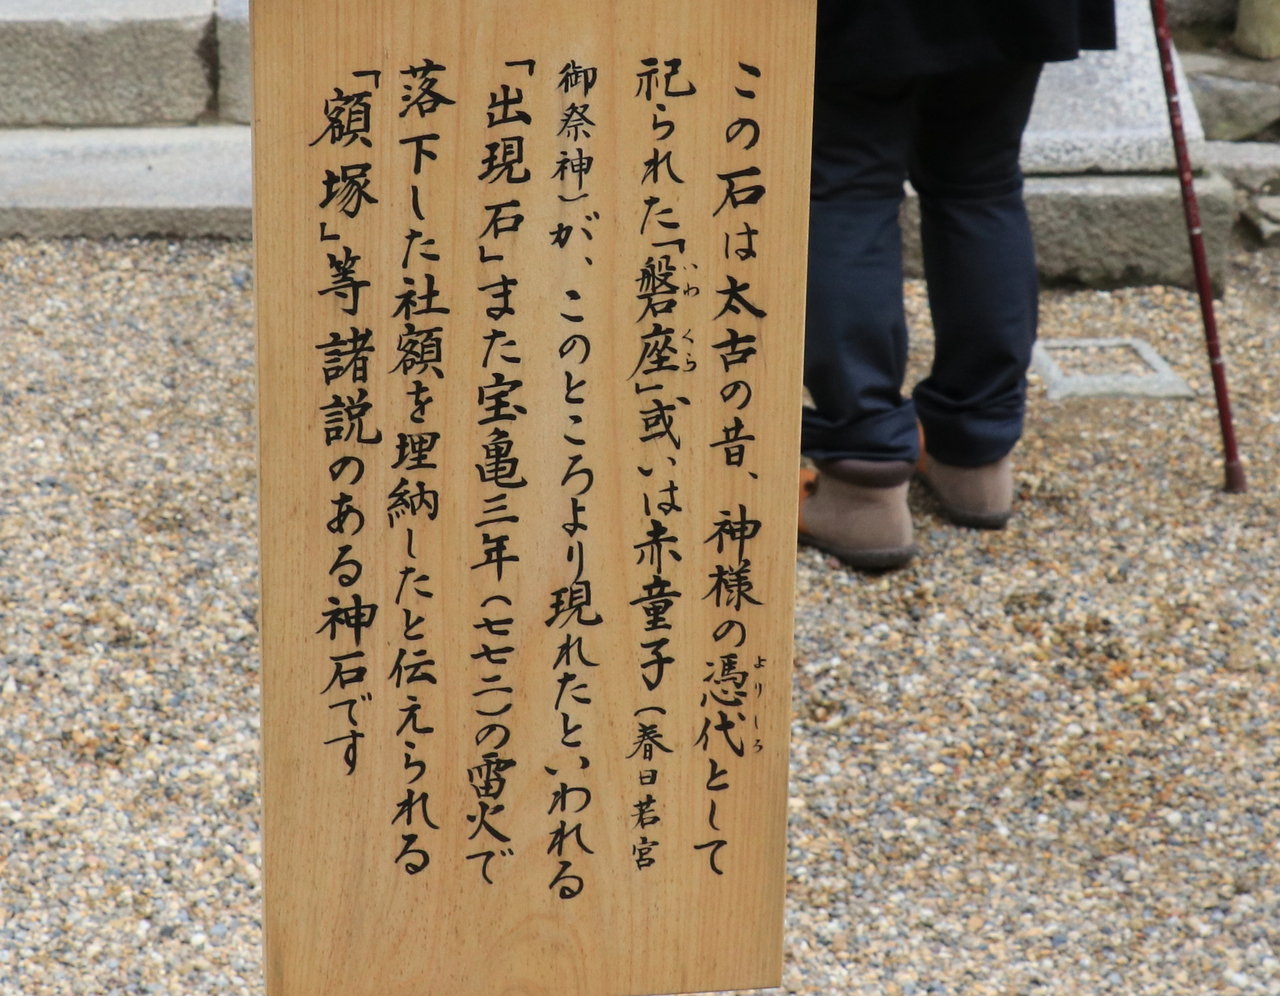 この石は太古の昔、神様の憑代として
よりしろ
祀られた「磐座」或いは赤童子（春日若宮
いわくら
御祭神）が、このところより現れたといわれる
「出現石」また宝亀三年（七七二）の雷火で
落下した社額を埋納したと伝えられる
「額塚」等諸説のある神石です